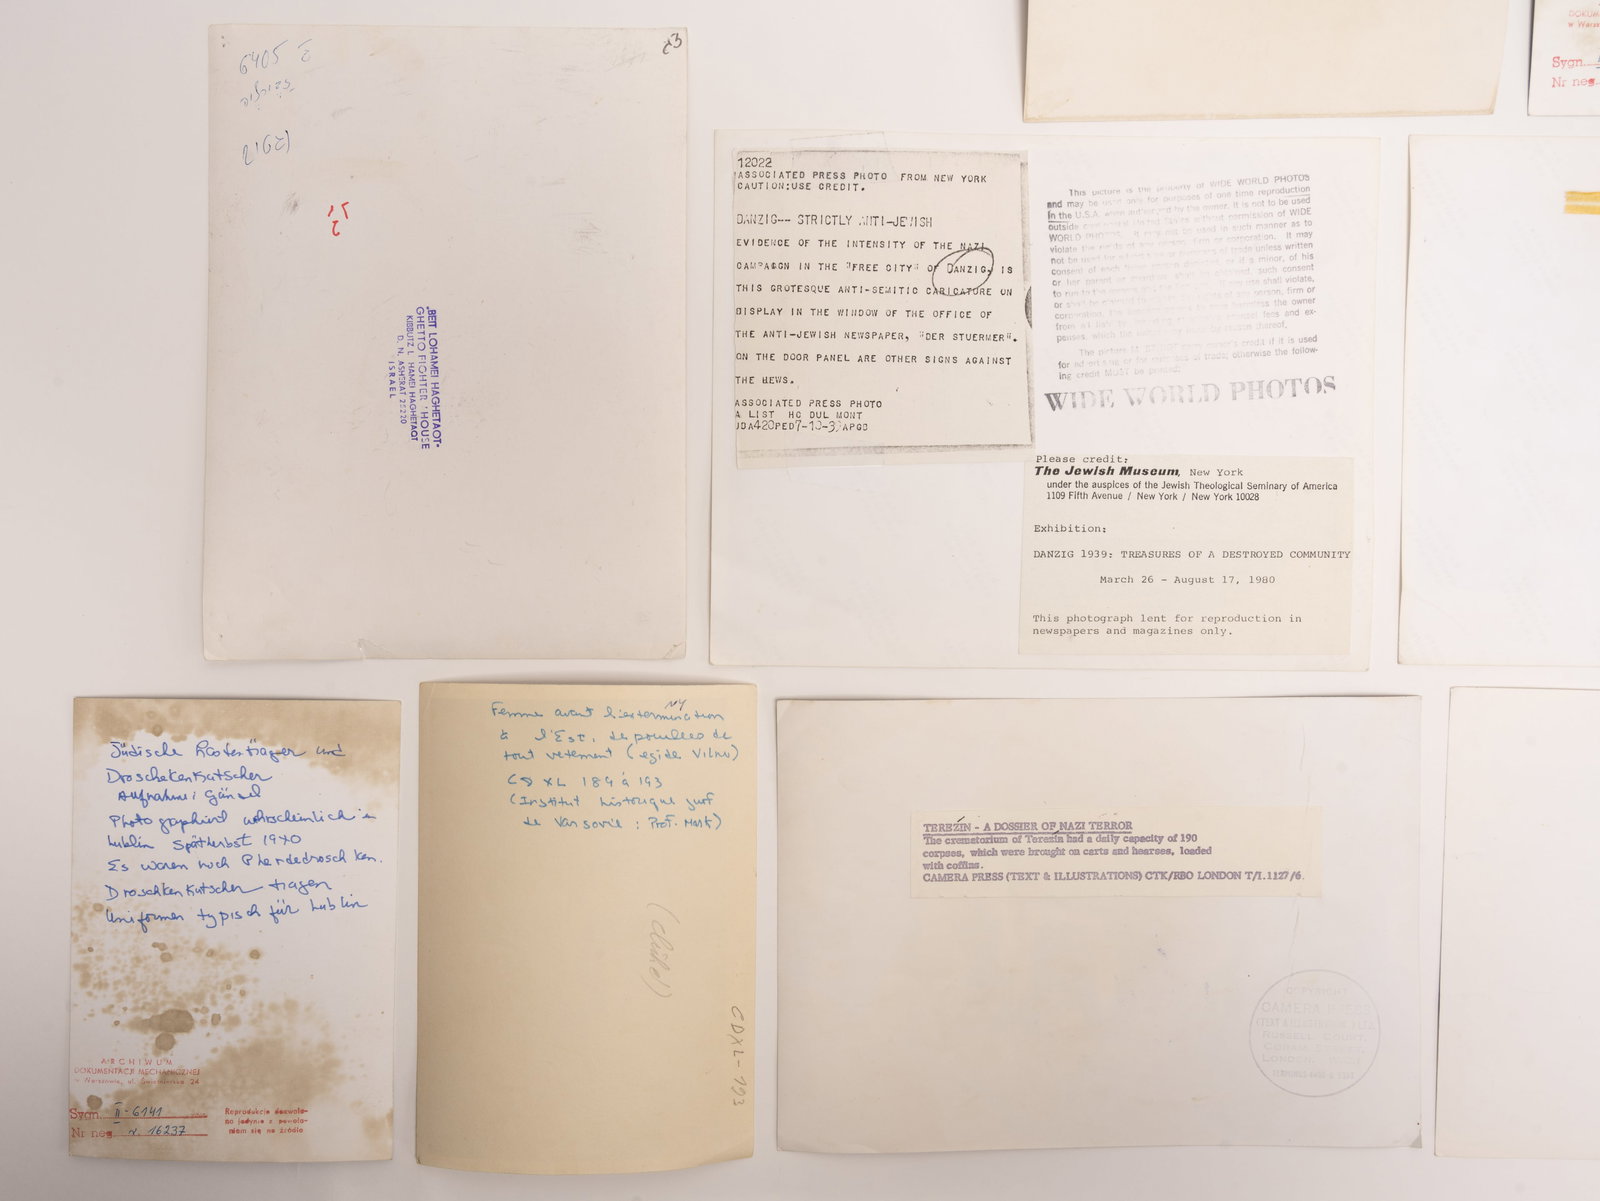 6405
23
BEIT LOHAMEI HAGHETAOT
GHETTO FIGHTER HOUSE
KIBBUTZ L HAMEI HAGHETAOT
D. N. ASHERAT 25220
ISRAEL
12022
ASSOCIATED PRESS PHOTO FROM NEW YORK
CAUTION:USE CREDIT.
DANZIG-- STRICTLY ANTI-JEWISH
EVIDENCE OF THE INTENSITY OF THE NAZI
CAMPAIGN IN THE "FREE CITY" OF DANZIG, IS
THIS GROTESQUE ANTI-SEMITIC CARICATURE ON
DISPLAY IN THE WINDOW OF THE OFFICE OF
THE ANTI-JEWISH NEWSPAPER, "DER STUERMER".
ON THE DOOR PANEL ARE OTHER SIGNS AGAINST
THE
ASSOCIATED PRESS PHOTO
A LIST HC DUL MONT
This picture is the property of WIDE WORLD PHOTOS
and may be used only for purposes of one time reproduction
in the U.S.A. when authorized by the owner. It is not to be used
outside continental United States without permission of WIDE
WORLD PHOTOS. It may not be used in such manner as to
violate the rights of any person, firm or corporation. It may
not be used for of trade unless written
consent of or if a minor, of his
or her parent such consent
to run to the use shall violate,
or any person, firm or
the owner
fees and ex-
penses, which thereof.
The picture owner's credit if it is used
for trade; otherwise the follow-
ing credit MUST be printed:
WIDE WORLD PHOTOS
Please credit:
The Jewish Museum, New York
under the auspices of the Jewish Theological Seminary of America
1109 Fifth Avenue / New York / New York 10028
Exhibition:
DANZIG 1939: TREASURES OF A DESTROYED COMMUNITY
March 26 - August 17, 1980
This photograph lent for reproduction in
newspapers and magazines only.
Sygn.
Nr neg.
Jüdische Lastenträger und
Droschkenkutscher
Aufnahme: Gänsel
Photographiert wahrscheinlich in
Lublin Spätherbst 1940
Es waren noch Pferdedroschken.
Droschkenkutscher tragen
Uniformen typisch für Lublin
ARCHIWUM
DOKUMENTACJI MECHANICZNEJ
w Warszawie, ul. Świętojerska 24
Sygn. II-6141
Nr neg. N. 16237
Reprodukcja dozwolo-
na jedynie z powoła-
niem się na źródło
NY
Femme avant l'extermination
à l'Est, depouillées de
tout vetement (region Vilno)
CD XL 189 à 193
(Institut historique juif
de Varsovie : Prof. Mark)
(cliché)
CDXL-193
TEREZÍN - A DOSSIER OF NAZI TERROR
The crematorium of Terezín had a daily capacity of 190
corpses, which were brought on carts and hearses, loaded
with coffins.
CAMERA PRESS (TEXT & ILLUSTRATIONS) CTK/RBO LONDON T/I.1127/6.
COPYRIGHT
CAMERA PRESS
(TEXT & ILLUSTRATIONS) LTD.
RUSSELL COURT,
CORAM STREET,
LONDON, W.C.1